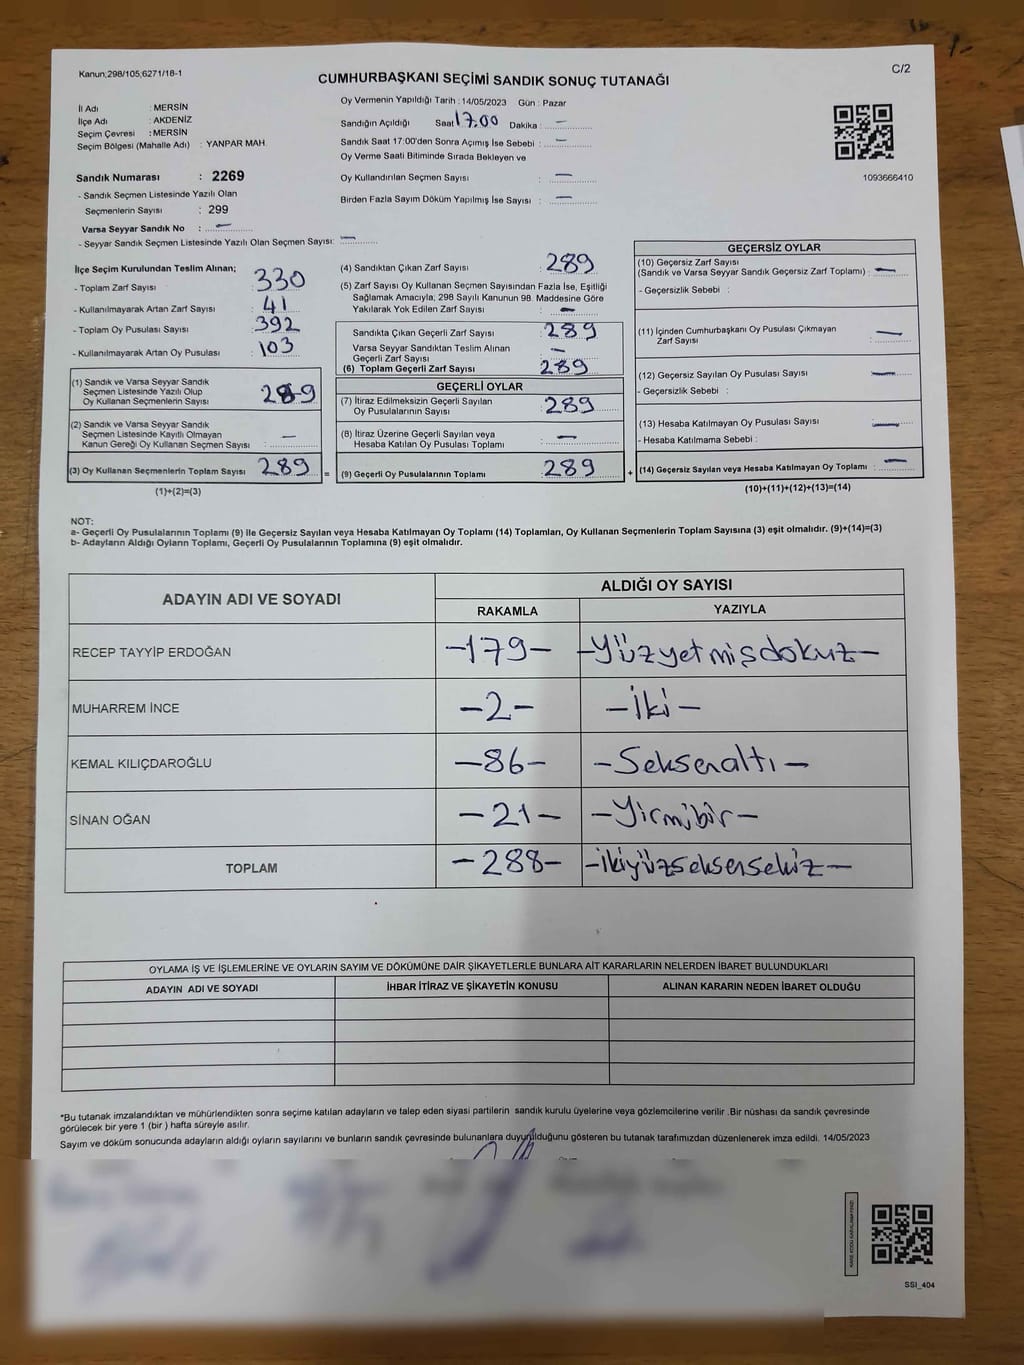 Kanun;298/105;6271/18-1
C/2
CUMHURBAŞKANI SEÇİMİ SANDIK SONUÇ TUTANAĞI
İl Adı : MERSİN
İlçe Adı : AKDENİZ
Seçim Çevresi : MERSİN
Seçim Bölgesi (Mahalle Adı) : YANPAR MAH.
Sandık Numarası : 2269
- Sandık Seçmen Listesinde Yazılı Olan
Seçmenlerin Sayısı : 299
Varsa Seyyar Sandık No : —
- Seyyar Sandık Seçmen Listesinde Yazılı Olan Seçmen Sayısı: —
Oy Vermenin Yapıldığı Tarih : 14/05/2023 Gün : Pazar
Sandığın Açıldığı Saat 17.00 Dakika : —
Sandık Saat 17:00'den Sonra Açımış İse Sebebi : —
Oy Verme Saati Bitiminde Sırada Bekleyen ve
Oy Kullandırılan Seçmen Sayısı : —
Birden Fazla Sayım Döküm Yapılmış İse Sayısı : —
1093666410
İlçe Seçim Kurulundan Teslim Alınan;
- Toplam Zarf Sayısı : 330
- Kullanılmayarak Artan Zarf Sayısı : 41
- Toplam Oy Pusulası Sayısı : 392
- Kullanılmayarak Artan Oy Pusulası : 103
(1) Sandık ve Varsa Seyyar Sandık
Seçmen Listesinde Yazılı Olup
Oy Kullanan Seçmenlerin Sayısı : 289
(2) Sandık ve Varsa Seyyar Sandık
Seçmen Listesinde Kayıtlı Olmayan
Kanun Gereği Oy Kullanan Seçmen Sayısı : —
(3) Oy Kullanan Seçmenlerin Toplam Sayısı : 289
(1)+(2)=(3)
(4) Sandıktan Çıkan Zarf Sayısı : 289
(5) Zarf Sayısı Oy Kullanan Seçmen Sayısından Fazla İse, Eşitliği
Sağlamak Amacıyla; 298 Sayılı Kanunun 98. Maddesine Göre
Yakılarak Yok Edilen Zarf Sayısı : —
Sandıkta Çıkan Geçerli Zarf Sayısı : 289
Varsa Seyyar Sandıktan Teslim Alınan
Geçerli Zarf Sayısı : —
(6) Toplam Geçerli Zarf Sayısı : 289
GEÇERLİ OYLAR
(7) İtiraz Edilmeksizin Geçerli Sayılan
Oy Pusulalarının Sayısı : 289
(8) İtiraz Üzerine Geçerli Sayılan veya
Hesaba Katılan Oy Pusulası Toplamı : —
= (9) Geçerli Oy Pusulalarının Toplamı : 289 +
GEÇERSİZ OYLAR
(10) Geçersiz Zarf Sayısı
(Sandık ve Varsa Seyyar Sandık Geçersiz Zarf Toplamı) : —
- Geçersizlik Sebebi :
(11) İçinden Cumhurbaşkanı Oy Pusulası Çıkmayan
Zarf Sayısı : —
(12) Geçersiz Sayılan Oy Pusulası Sayısı : —
- Geçersizlik Sebebi :
(13) Hesaba Katılmayan Oy Pusulası Sayısı : —
- Hesaba Katılmama Sebebi :
(14) Geçersiz Sayılan veya Hesaba Katılmayan Oy Toplamı : —
(10)+(11)+(12)+(13)=(14)
NOT:
a- Geçerli Oy Pusulalarının Toplamı (9) ile Geçersiz Sayılan veya Hesaba Katılmayan Oy Toplamı (14) Toplamları, Oy Kullanan Seçmenlerin Toplam Sayısına (3) eşit olmalıdır. (9)+(14)=(3)
b- Adayların Aldığı Oyların Toplamı, Geçerli Oy Pusulalarının Toplamına (9) eşit olmalıdır.
ADAYIN ADI VE SOYADI
ALDIĞI OY SAYISI
RAKAMLA YAZIYLA
RECEP TAYYİP ERDOĞAN -179- -Yüzyetmişdokuz-
MUHARREM İNCE -2- -İki-
KEMAL KILIÇDAROĞLU -86- -Seksenaltı-
SİNAN OĞAN -21- -Yirmibir-
TOPLAM -288- -ikiyüzseksensekiz-
OYLAMA İŞ VE İŞLEMLERİNE VE OYLARIN SAYIM VE DÖKÜMÜNE DAİR ŞİKAYETLERLE BUNLARA AİT KARARLARIN NELERDEN İBARET BULUNDUKLARI
ADAYIN ADI VE SOYADI İHBAR İTİRAZ VE ŞİKAYETİN KONUSU ALINAN KARARIN NEDEN İBARET OLDUĞU
*Bu tutanak imzalandıktan ve mühürlendikten sonra seçime katılan adayların ve talep eden siyasi partilerin sandık kurulu üyelerine veya gözlemcilerine verilir .Bir nüshası da sandık çevresinde
görülecek bir yere 1 (bir ) hafta süreyle asılır.
Sayım ve döküm sonucunda adayların aldığı oyların sayılarını ve bunların sandık çevresinde bulunanlara duyurulduğunu gösteren bu tutanak tarafımızdan düzenlenerek imza edildi. 14/05/2023
SSI_404